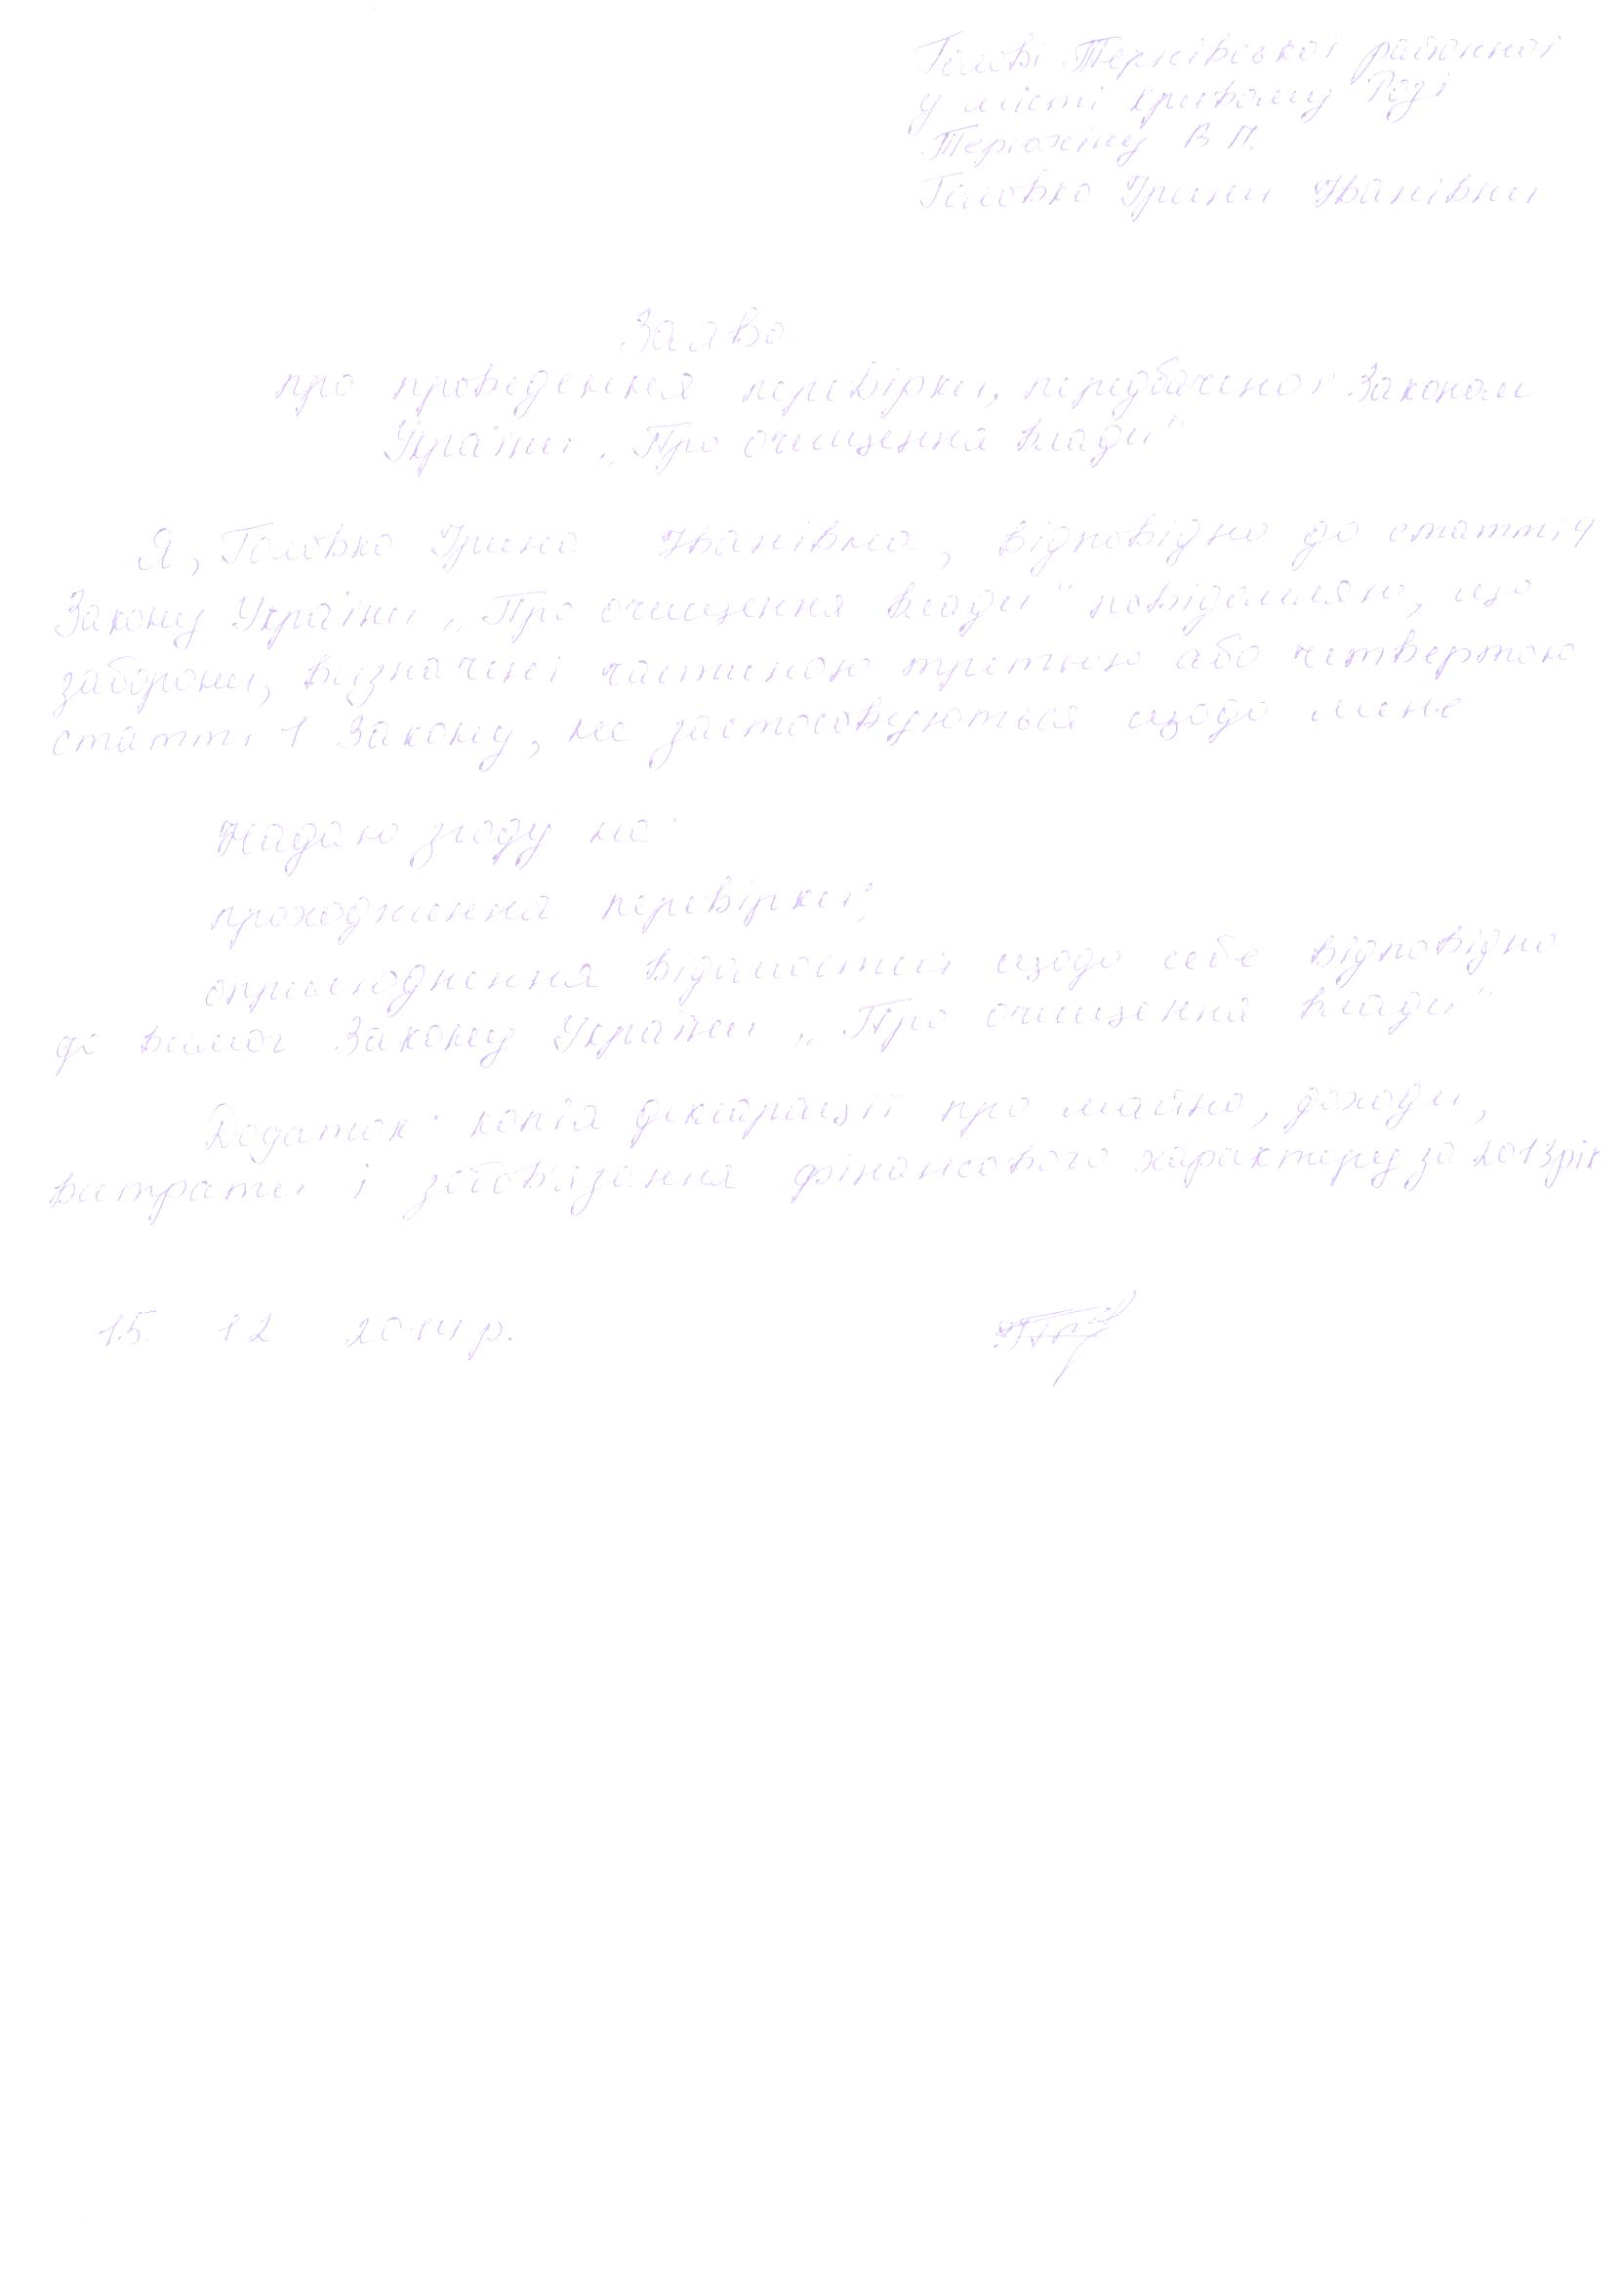 Голові Тернівської районної
у місті Кривому Розі
Терюхіну В П.
Головко Ірини Іванівни
Заява
про проведення перевірки, передбаченої Законом
України „Про очищення влади"
Я, Головко Ірина Іванівна, відповідно до статті 4
Закону України „Про очищення влади" повідомляю, що
заборони, визначені частиною третьою або четвертою
статті 1 Закону, не застосовуються щодо мене
Надаю згоду на:
проходження перевірки;
оприлюднення відомостей щодо себе відповідно
до вимог Закону України „Про очищення влади"
Додаток: копія декларації про майно, доходи,
витрати і зобов'язання фінансового характеру за 2013 рік.
15. 12 2014 р.